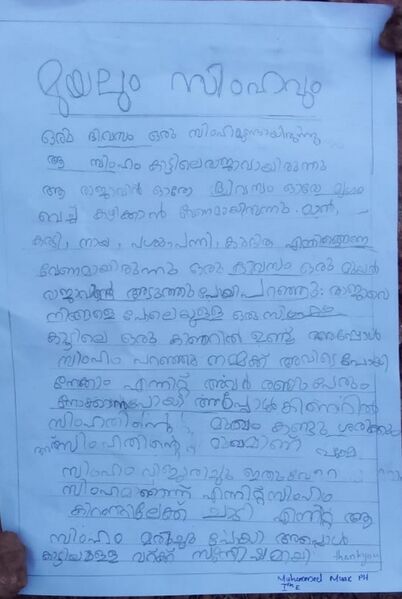 മുയലും സിംഹവും
ഒരു ദിവസം ഒരു സിംഹമുണ്ടായിരുന്നു
ആ സിംഹം കാട്ടിലെരാജാവായിരുന്നു
ആ രാജാവിന് ഓരോ ദിവസം ഓരോ മൃഗം
വെച്ച് കഴിക്കാൻ വേണമായിരുന്നു. മാൻ,
കരടി, നായ, പശു, പന്നി, കുതിര എന്നിങ്ങനെ
വേണമായിരുന്നു ഒരു ദിവസം ഒരു മുയൽ
രാജാവിന്റെ അടുത്തുപോയി പറഞ്ഞു: രാജാവെ
നിങ്ങളെ പോലെയുള്ള ഒരു സിംഹം
കാട്ടിലെ ഒരു കിണറിൽ ഉണ്ട് അപ്പോൾ
സിംഹം പറഞ്ഞു നമ്മുക്ക് അവിടെ പോയി
നോക്കാം എന്നിട്ട് അവർ രണ്ടുപേരും
നോക്കാൻപോയി അപ്പോൾ കിണറിൽ
സിംഹത്തിന്റെ മുഖം കണ്ടു ശരിക്കും
അത് സിംഹത്തിന്റെ മുഖമാണ് പക്ഷേ
സിംഹം വിജാരിച്ചു ഇത് വേറെ
സിംഹമാണെന്ന് എന്നിട്ട് സിംഹം
കിണറ്റിലേക്ക് ചാടി എന്നിട്ട് ആ
സിംഹം മരിച്ചു പോയി അപ്പോൾ
കാട്ടിയുള്ള വർക്ക് സന്തോഷമായി thankyou
Muhammed PH